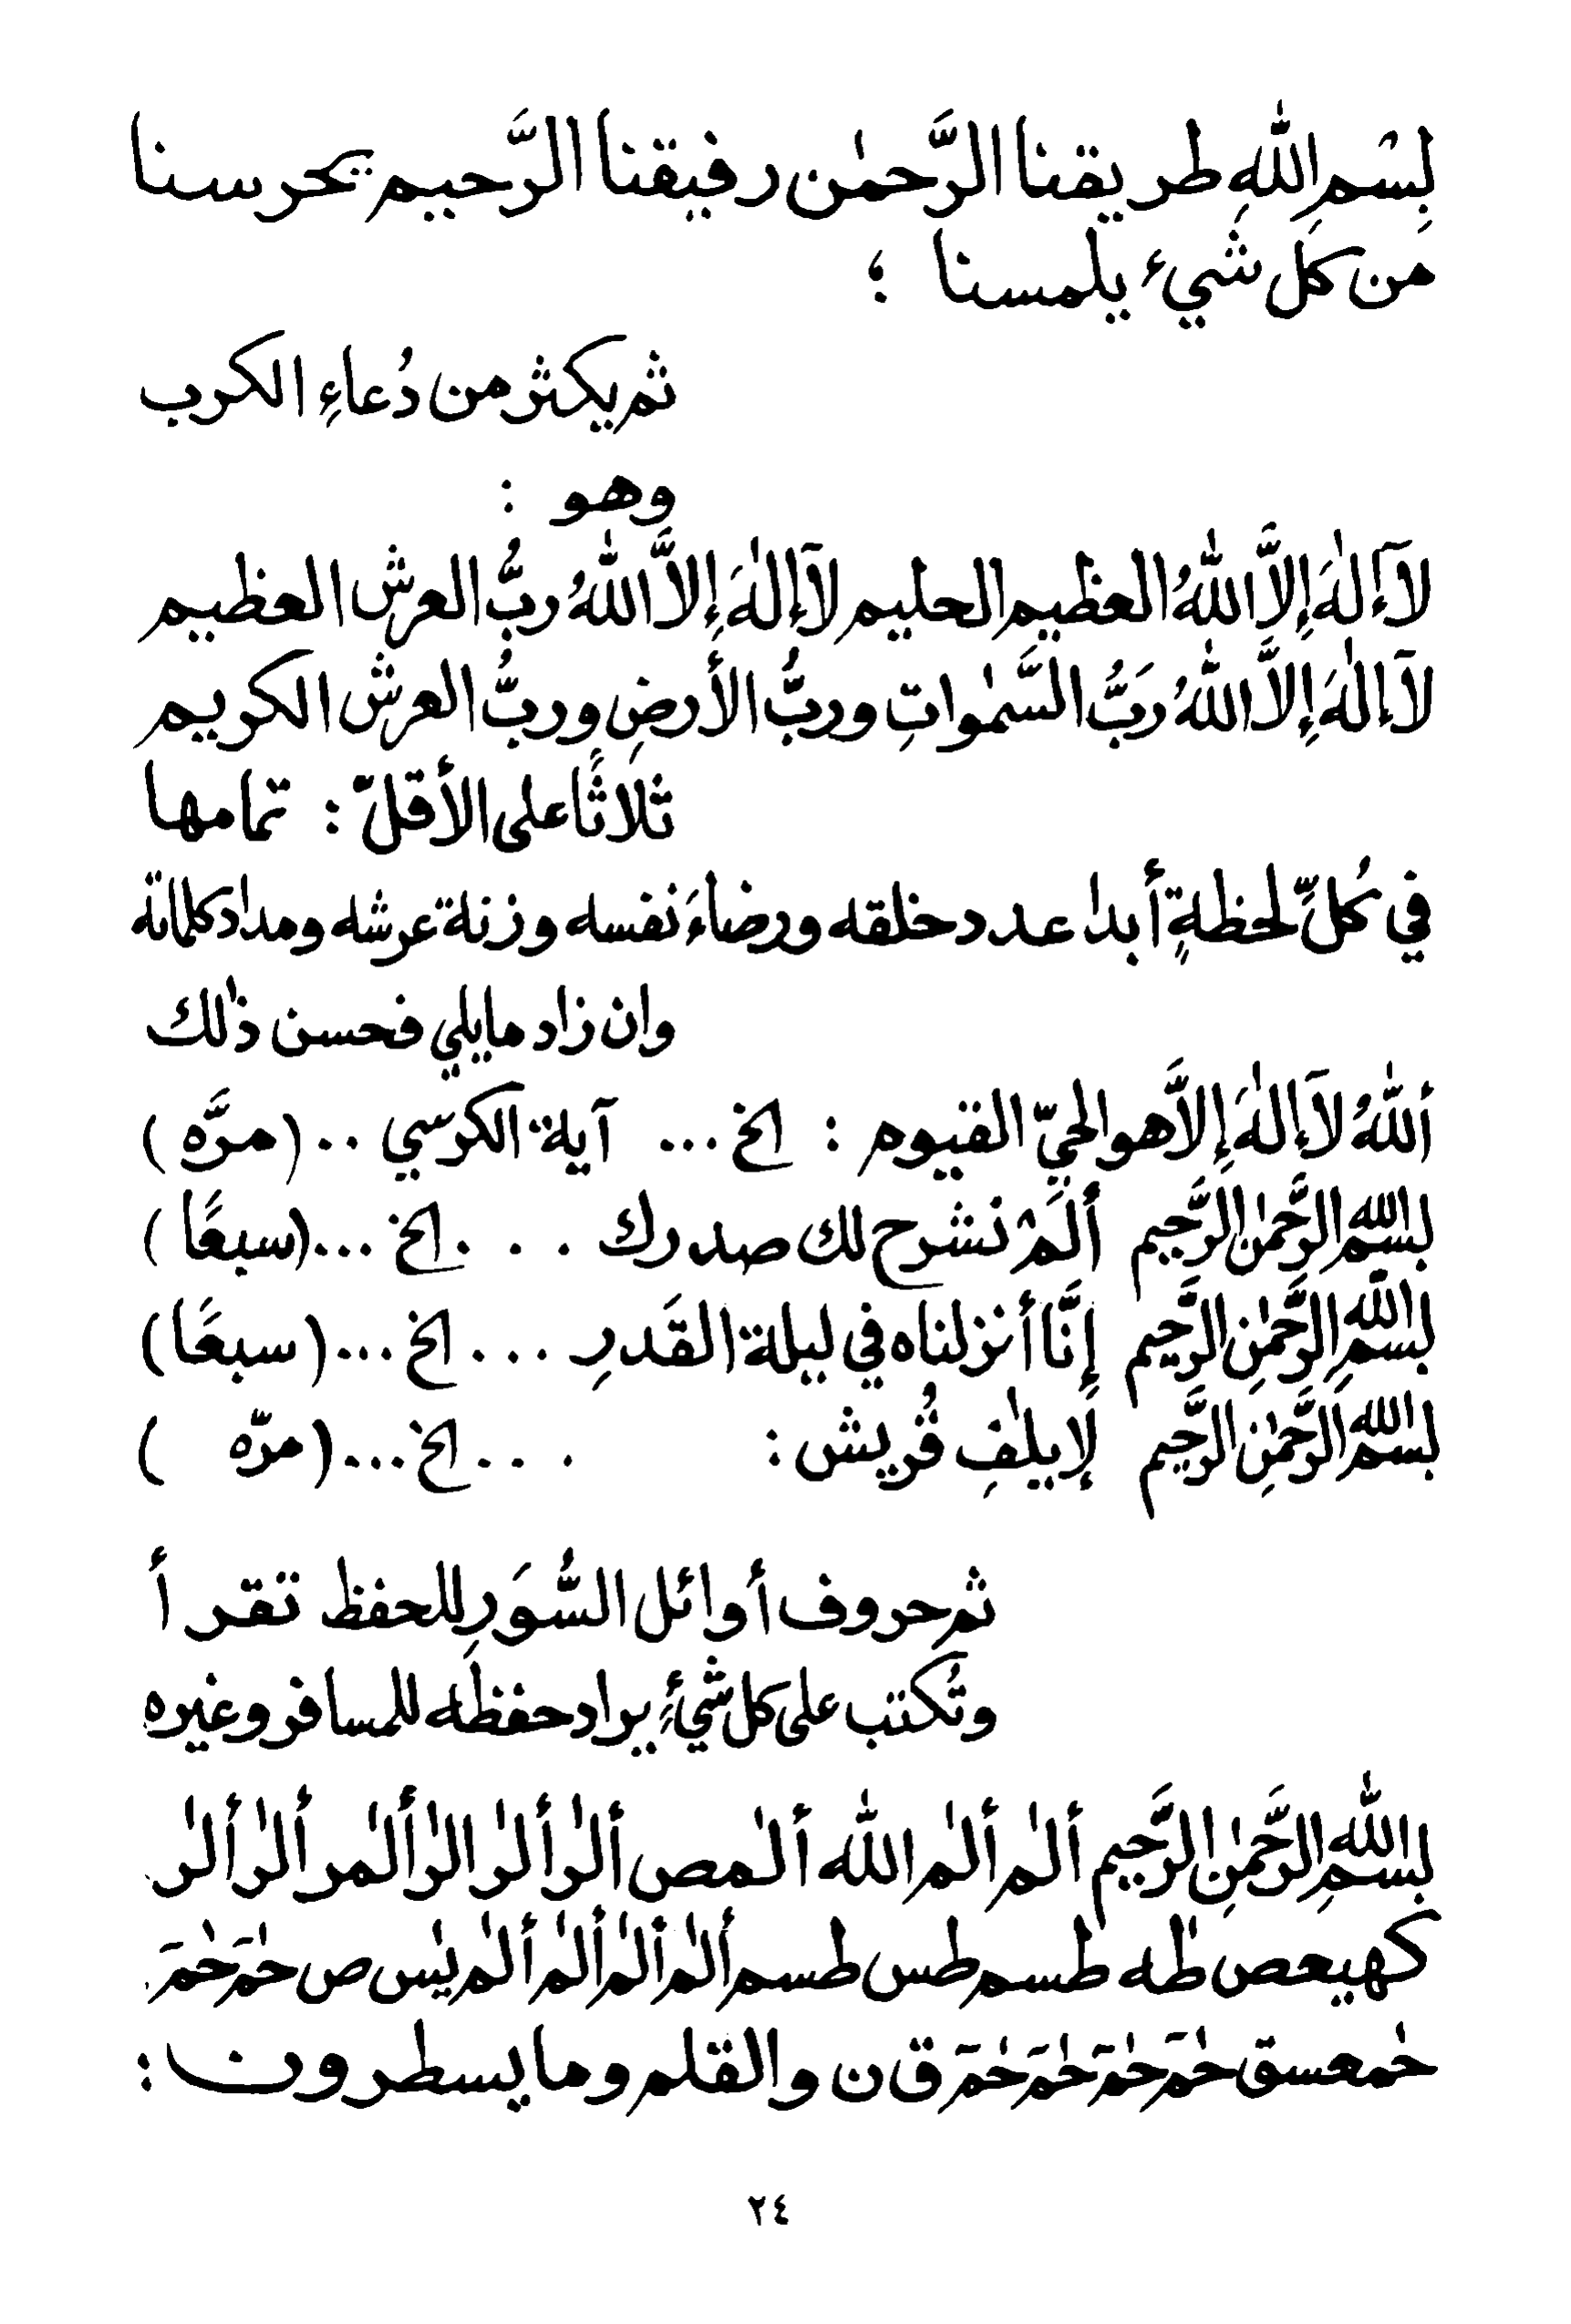 بِسْمِ اللهِ طريقنا الرَّحمٰن رفيقنا الرَّحيم يحرسنا
من كل شيء يلمسنا ؛
ثم يكثر من دُعاءِ الكرب
وهو :
لآ إلٰهَ إلاَّ اللهُ العظيم الحليم لآ إلٰهَ إلاَّ اللهُ ربُّ العرش العظيم
لآ إلٰهَ إلاَّ اللهُ رَبُّ السَّمٰواتِ وربُّ الأرضِ وربُّ العرش الكريم
ثلاثًا على الأقلّ : تمامها
في كُلِّ لحظةٍ أبدا عدد خلقه ورضاءَ نفسه وزنة عرشه ومداد كلماته
وان زاد مايلي فحسن ذٰلك
أللهُ لآ إلٰهَ إلاَّ هو الحيّ القيوم : الخ ... آية الكرسي .. (مرَّه)
بسم الله الرَّحمٰن الرَّحيم ألَمْ نشرح لك صدرك . . . . الخ ... (سبعًا)
بسم الله الرَّحمٰنِ الرَّحيم إنَّا أنزلناه في ليلة القَدرِ ... الخ ... (سبعًا)
بسم الله الرَّحمٰنِ الرَّحيم لإيلٰفِ قُريش : . . . . الخ ... (مرّه )
ثم حروف أوائل السُّوَرِ للحفظ تقرأ
وتُكتب على كل شيءٍ يراد حفظه للمسافر وغيره
بسم الله الرَّحمٰنِ الرَّحيم ألٰم ألٰم الله ألٰمص ألٰر ألٰر الٰر ألٰمر ألٰر ألٰر
كهيعص طٰه طسم طس طسم ألٰم ألٰم ألٰم ألٰم يٰس ص حٰمٓ حٰمٓ
حٰمعسق حٰمٓ حٰمٓ حٰمٓ حٰمٓ ق ن والقلم وما يسطرون :
٢٤